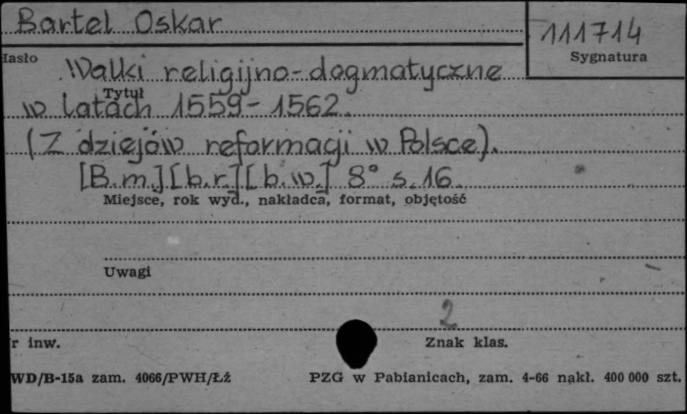 Bartel Oskar
111714
Hasło
Sygnatura
Walki religijno-dogmatyczne
Tytuł
w latach 1559-1562.
(Z dziejów reformacji w Polsce).
[B.m.][b.r.][b.w.] 8° s.16.
Miejsce, rok wyd., nakładca, format, objętość
Uwagi
2
r inw.
Znak klas.
WD/B-15a zam. 4066/PWH/Łź
PZG w Pabianicach, zam. 4-66 nakł. 400 000 szt.